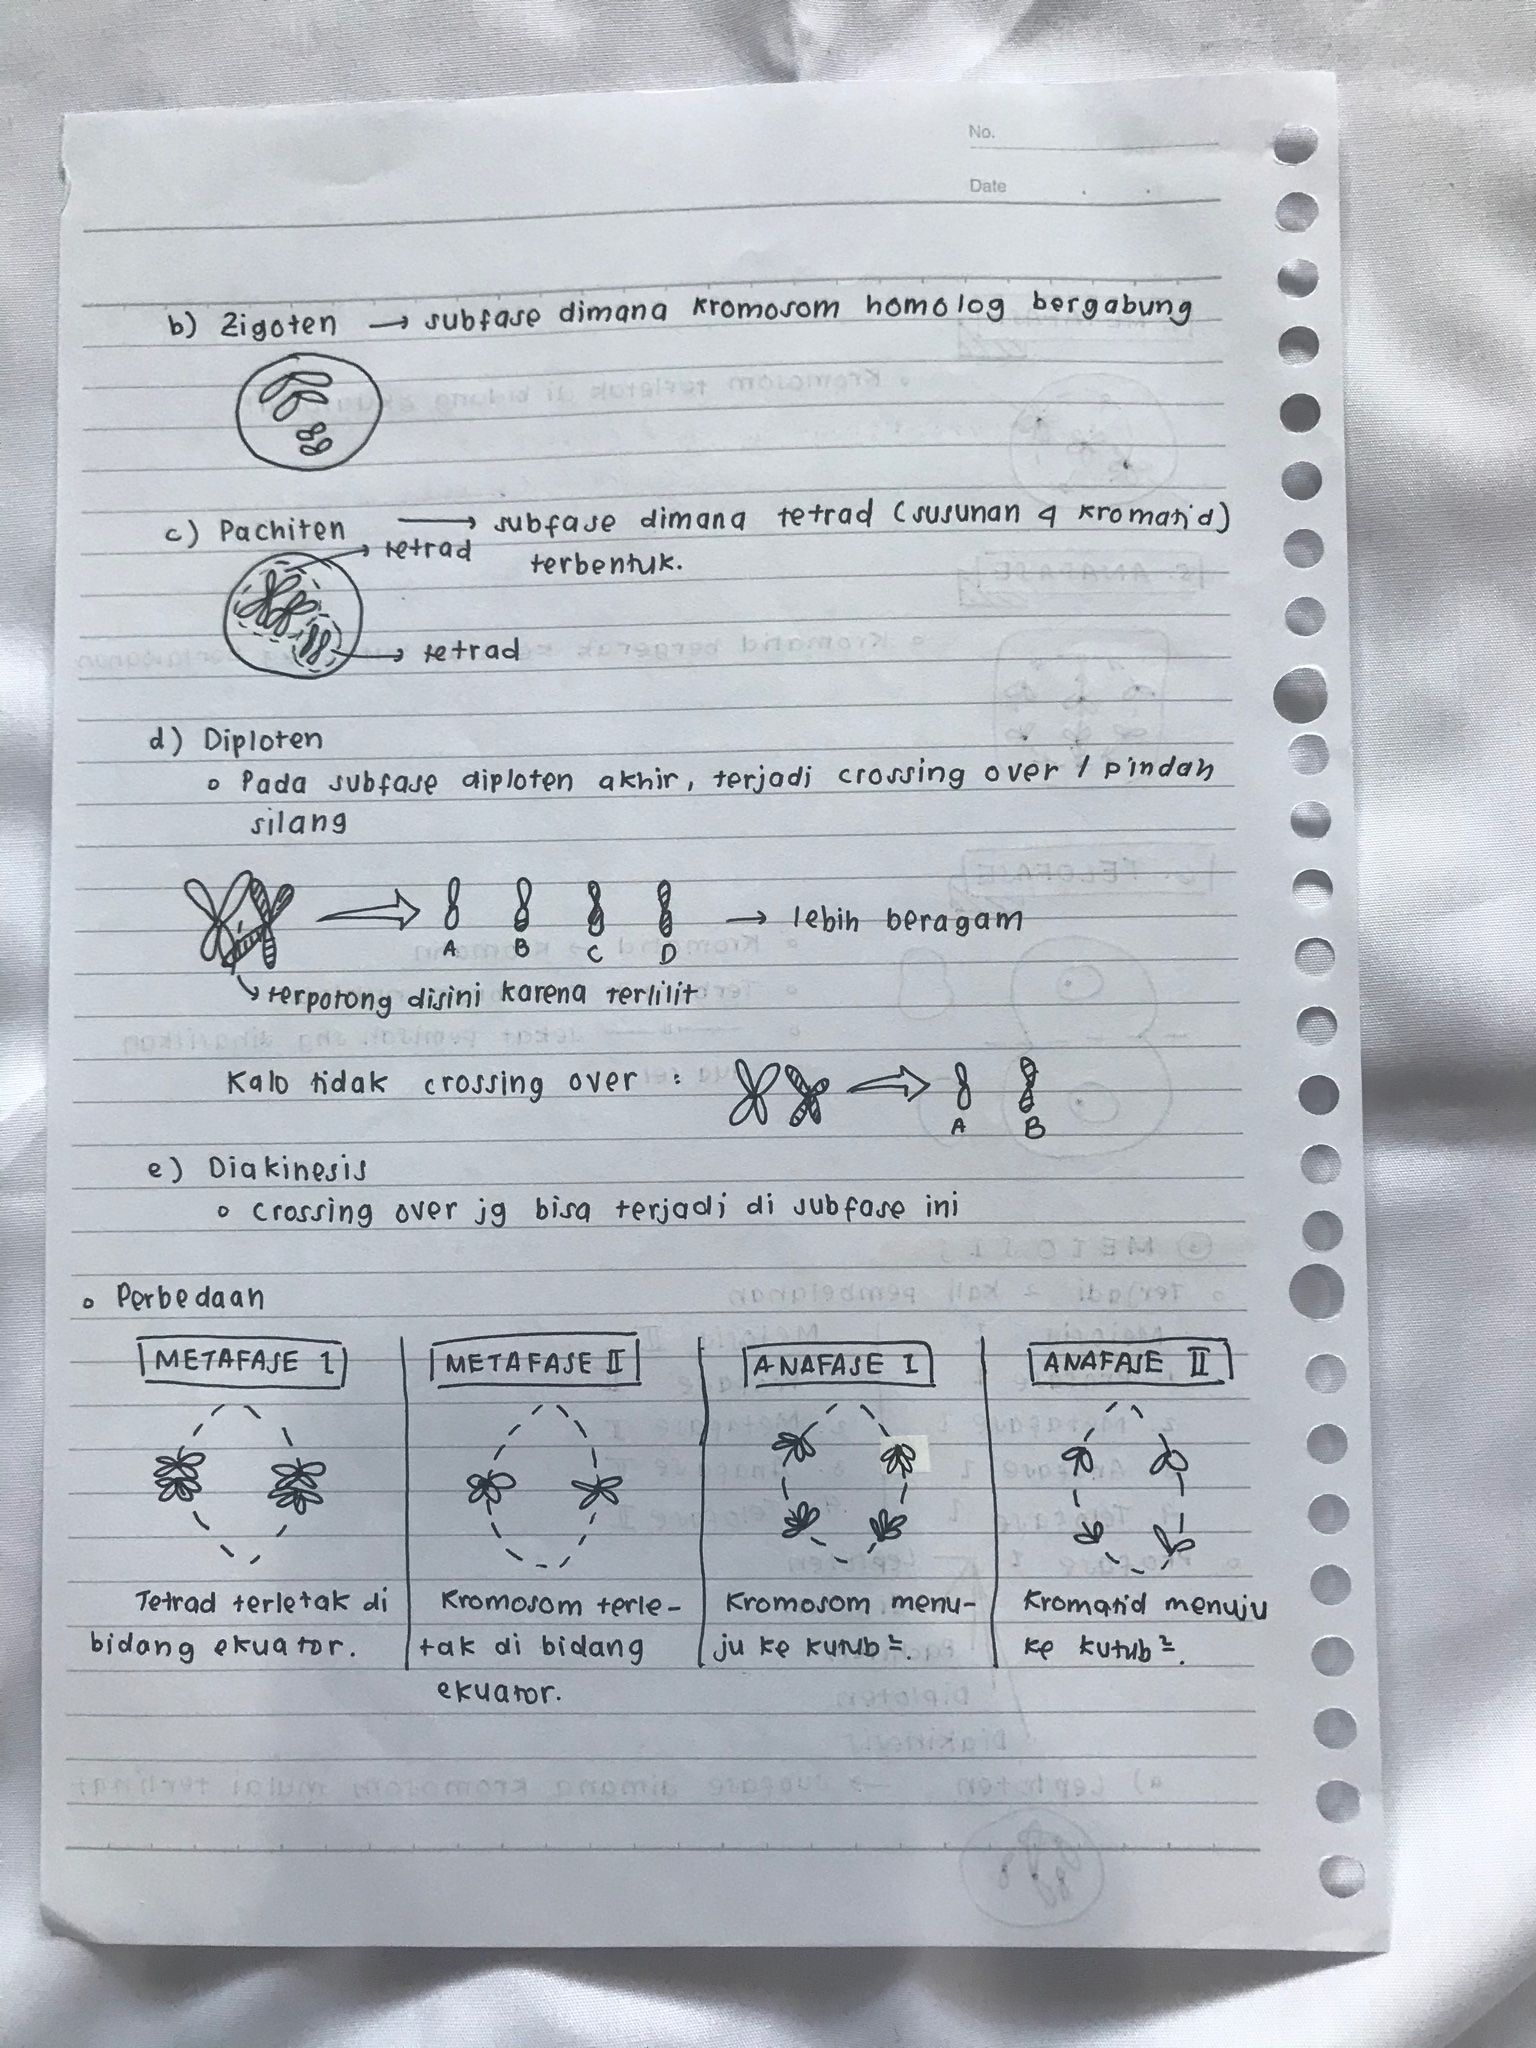 No.
Date
b) Zigoten → subfase dimana kromosom homolog bergabung
c) Pachiten → subfase dimana tetrad (susunan 4 kromatid)
→ tetrad
terbentuk.
→ tetrad
d) Diploten
o Pada subfase diploten akhir, terjadi crossing over / pindah
silang
A B C D → lebih beragam
terpotong disini karena terlilit
Kalo tidak crossing over :
A B
e) Diakinesis
o crossing over jg bisa terjadi di subfase ini
o Perbedaan
METAFASE I
METAFASE II
ANAFASE I
ANAFASE II
Tetrad terletak di
bidang ekuator.
Kromosom terle-
tak di bidang
ekuator.
Kromosom menu-
ju ke kutub².
Kromatid menuju
ke kutub².